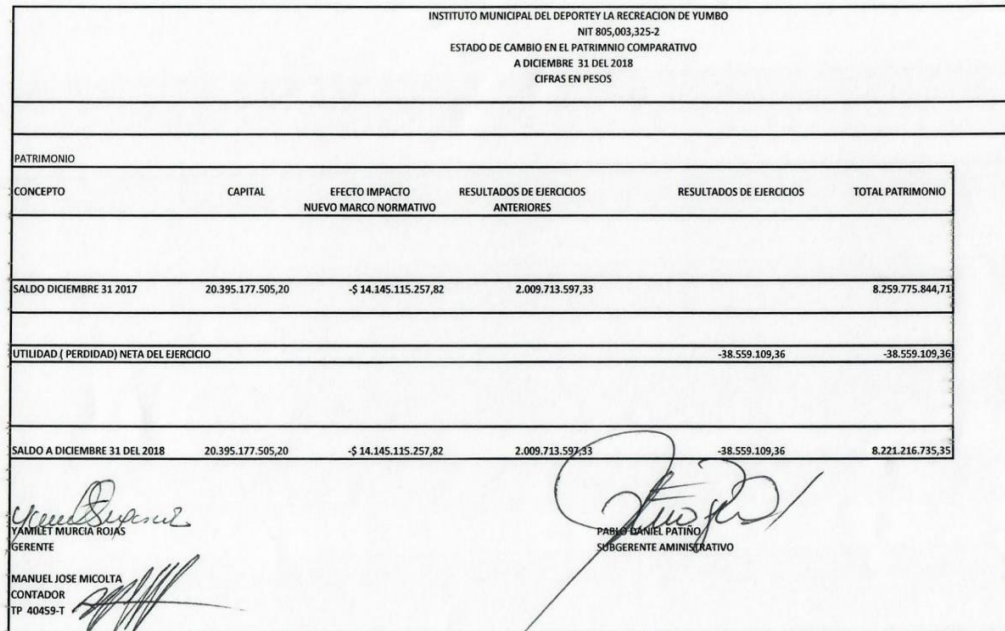 INSTITUTO MUNICIPAL DEL DEPORTEY LA RECREACION DE YUMBO
NIT 805,003,325-2
ESTADO DE CAMBIO EN EL PATRIMNIO COMPARATIVO
A DICIEMBRE 31 DEL 2018
CIFRAS EN PESOS
PATRIMONIO
CONCEPTO CAPITAL EFECTO IMPACTO RESULTADOS DE EJERCICIOS RESULTADOS DE EJERCICIOS TOTAL PATRIMONIO
NUEVO MARCO NORMATIVO ANTERIORES
SALDO DICIEMBRE 31 2017 20.395.177.505,20 -$ 14.145.115.257,82 2.009.713.597,33 8.259.775.844,71
UTILIDAD ( PERDIDAD) NETA DEL EJERCICIO -38.559.109,36 -38.559.109,36
SALDO A DICIEMBRE 31 DEL 2018 20.395.177.505,20 -$ 14.145.115.257,82 2.009.713.597,33 -38.559.109,36 8.221.216.735,35
YAMILET MURCIA ROJAS PABLO DANIEL PATIÑO
GERENTE SUBGERENTE AMINISTRATIVO
MANUEL JOSE MICOLTA
CONTADOR
TP 40459-T